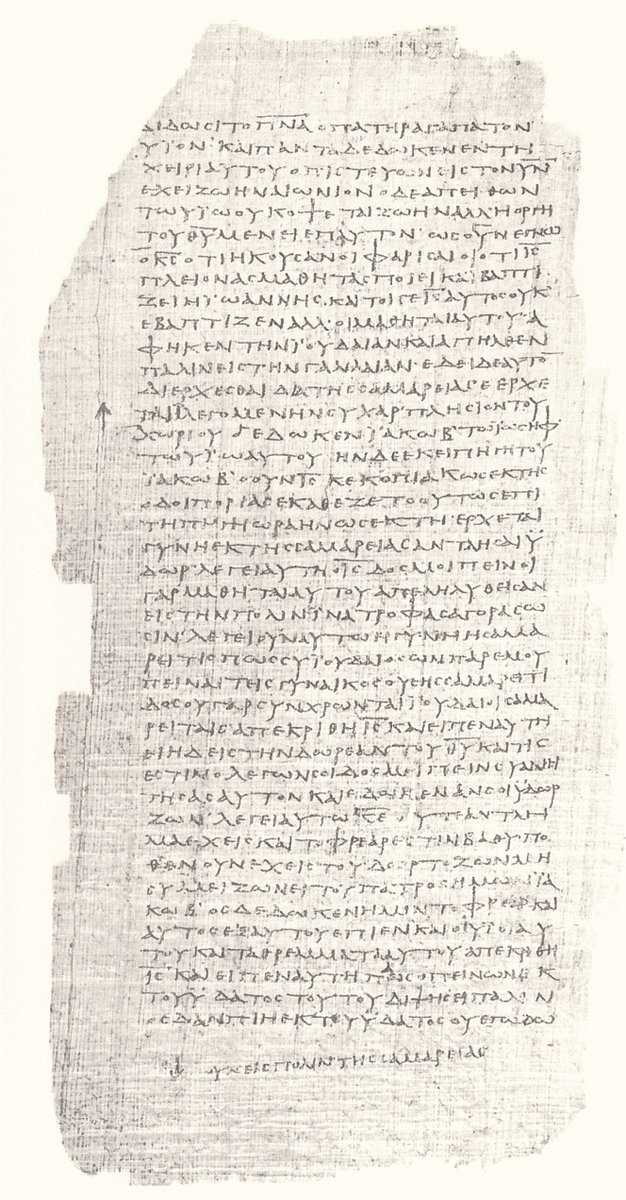 ΔΙΔΩCΙΤΟΠ̅Ν̅Α̅ΟΠΑΤΗΡΑΓΑΠΑΤΟΝ
ΥΪΟΝ·ΚΑΙΠΑΝΤΑΔΕΔΩΚΕΝΕΝΤΗ
ΧΕΙΡΙΑΥΤΟΥΟΠΙCΤΕΥΩΝΕΙCΤΟΝΥ̅Ν̅
ΕΧΕΙΖΩΗΝΑΙΩΝΙΟΝΟΔΕΑΠΕΙΘΩΝ
ΤΩΥΪΩΟΥΚΟΨΕΤΑΙΖΩΗΝΑΛΛΗΟΡΓΗ
ΤΟΥΘ̅Υ̅ΜΕΝΕΙΕΠΑΥΤΟΝ·ΩCΟΥΝΕΓΝΩ
ΟΚ̅C̅ΟΤΙΗΚΟΥCΑΝΟΙΦΑΡΙCΑΙΟΙΟΤΙΙ̅C̅
ΠΛΕΙΟΝΑCΜΑΘΗΤΑCΠΟΙΕΙΚΑΙΒΑΠΤΙ
ΖΕΙΗΪΩΑΝΝΗC·ΚΑΙΤΟΙΓΕΙ̅C̅ΑΥΤΟCΟΥΚ
ΕΒΑΠΤΙΖΕΝΑΛΛΟΙΜΑΘΗΤΑΙΑΥΤΟΥΑ
ΦΗΚΕΝΤΗΝΪΟΥΔΑΙΑΝΚΑΙΑΠΗΛΘΕΝ
ΠΑΛΙΝΕΙCΤΗΝΓΑΛΙΛΑΙΑΝ·ΕΔΕΙΔΕΑΥΤΟ̅
ΔΙΕΡΧΕCΘΑΙΔΙΑΤΗCCΑΜΑΡΕΙΑCΕΡΧΕ
ΤΑΙΛΕΓΟΜΕΝΗΝCΥΧΑΡ·ΠΛΗCΙΟΝΤΟΥ
ΧΩΡΙΟΥΟΕΔΩΚΕΝΪΑΚΩΒ'ΤΩΪΩCΗΦ'
ΤΩΥΪΩΑΥΤΟΥΗΝΔΕΕΚΕΙΠΗΓΗΤΟΥ
ΪΑΚΩΒ'ΟΟΥΝΙ̅C̅ΚΕΚΟΠΙΑΚΩCΕΚΤΗC
ΟΔΟΙΠΟΡΙΑCΕΚΑΘΕΖΕΤΟΟΥΤΩCΕΠΙ
ΤΗΠΗΓΗΩΡΑΗΝΩCΕΚΤΗ·ΕΡΧΕΤΑΙ
ΓΥΝΗΕΚΤΗCCΑΜΑΡΕΙΑCΑΝΤΛΗCΑΙΫ
ΔΩΡ·ΛΕΓΕΙΑΥΤΗΟΙ̅C̅ΔΟCΜΟΙΠΕΙΝΟΙ
ΓΑΡΜΑΘΗΤΑΙΑΥΤΟΥΑΠΕΛΗΛΥΘΕΙCΑΝ
ΕΙCΤΗΝΠΟΛΙΝΪΝΑΤΡΟΦΑCΑΓΟΡΑCΩ
CΙΝ·ΛΕΓΕΙΟΥΝΑΥΤΩΗΓΥΝΗΗCΑΜΑ
ΡΕΙΤΙCΠΩCCΥΪΟΥΔΑΙΟCΩΝΠΑΡΕΜΟΥ
ΠΕΙΝΑΙΤΕΙCΓΥΝΑΙΚΟCΟΥCΗCCΑΜΑΡΕΙΤΙ
ΔΟCΟΥΓΑΡCΥΝΧΡΩΝΤΑΙΪΟΥΔΑΙΟΙCΑΜΑ
ΡΕΙΤΑΙCΑΠΕΚΡΙΘΗΙ̅C̅ΚΑΙΕΙΠΕΝΑΥΤΗ
ΕΙΗΔΕΙCΤΗΝΔΩΡΕΑΝΤΟΥΘ̅Υ̅ΚΑΙΤΙC
ΕCΤΙΝΟΛΕΓΩΝCΟΙΔΟCΜΟΙΠΕΙΝCΥΑΝΗ
ΤΗCΑCΑΥΤΟΝΚΑΙΕΔΩΚΕΝΑΝCΟΙΫΔΩΡ
ΖΩΝ·ΛΕΓΕΙΑΥΤΩΚ̅Ε̅ΟΥΤΕΑΝΤΛΗ
ΜΑΕΧΕΙCΚΑΙΤΟΦΡΕΑΡΕCΤΙΝΒΑΘΥΠΟ
ΘΕΝΟΥΝΕΧΕΙCΤΟΥΔΩΡΤΟΖΩΝΜΗ
CΥΜΕΙΖΩΝΕΙΤΟΥΠΑΤΡΟCΗΜΩΝΪΑ
ΚΩΒ'ΟCΔΕΔΩΚΕΝΗΜΙΝΤΟΦΡΕΑΡΚΑΙ
ΑΥΤΟCΕΞΑΥΤΟΥΕΠΙΕΝΚΑΙΟΙΥΪΟΙΑΥ
ΤΟΥΚΑΙΤΑΘΡΕΜΜΑΤΑΑΥΤΟΥΑΠΕΚΡΙΘΗ
Ι̅C̅ΚΑΙΕΙΠΕΝΑΥΤΗΠΑCΟΠΕΙΝΩΝΕΚ
ΤΟΥΫΔΑΤΟCΤΟΥΤΟΥΔΙΨΗCΕΙΠΑΛΙΝ
ΟCΔΑΝΠΙΗΕΚΤΟΥΫΔΑΤΟCΟΥΕΓΩΔΩ
ΟΥΝΕΙCΠΟΛΙΝΤΗCCΑΜΑΡΕΙΑC